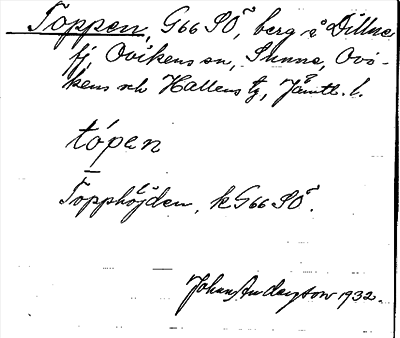 Toppen, G66 SO, berg å Dillne
fj, Ovikens sn, Sunne, Ovi-
kens och Hallens tg, Jämtl. l.
tópen
Topphöjden, k G66 SO.
Johan Andersson 1932.